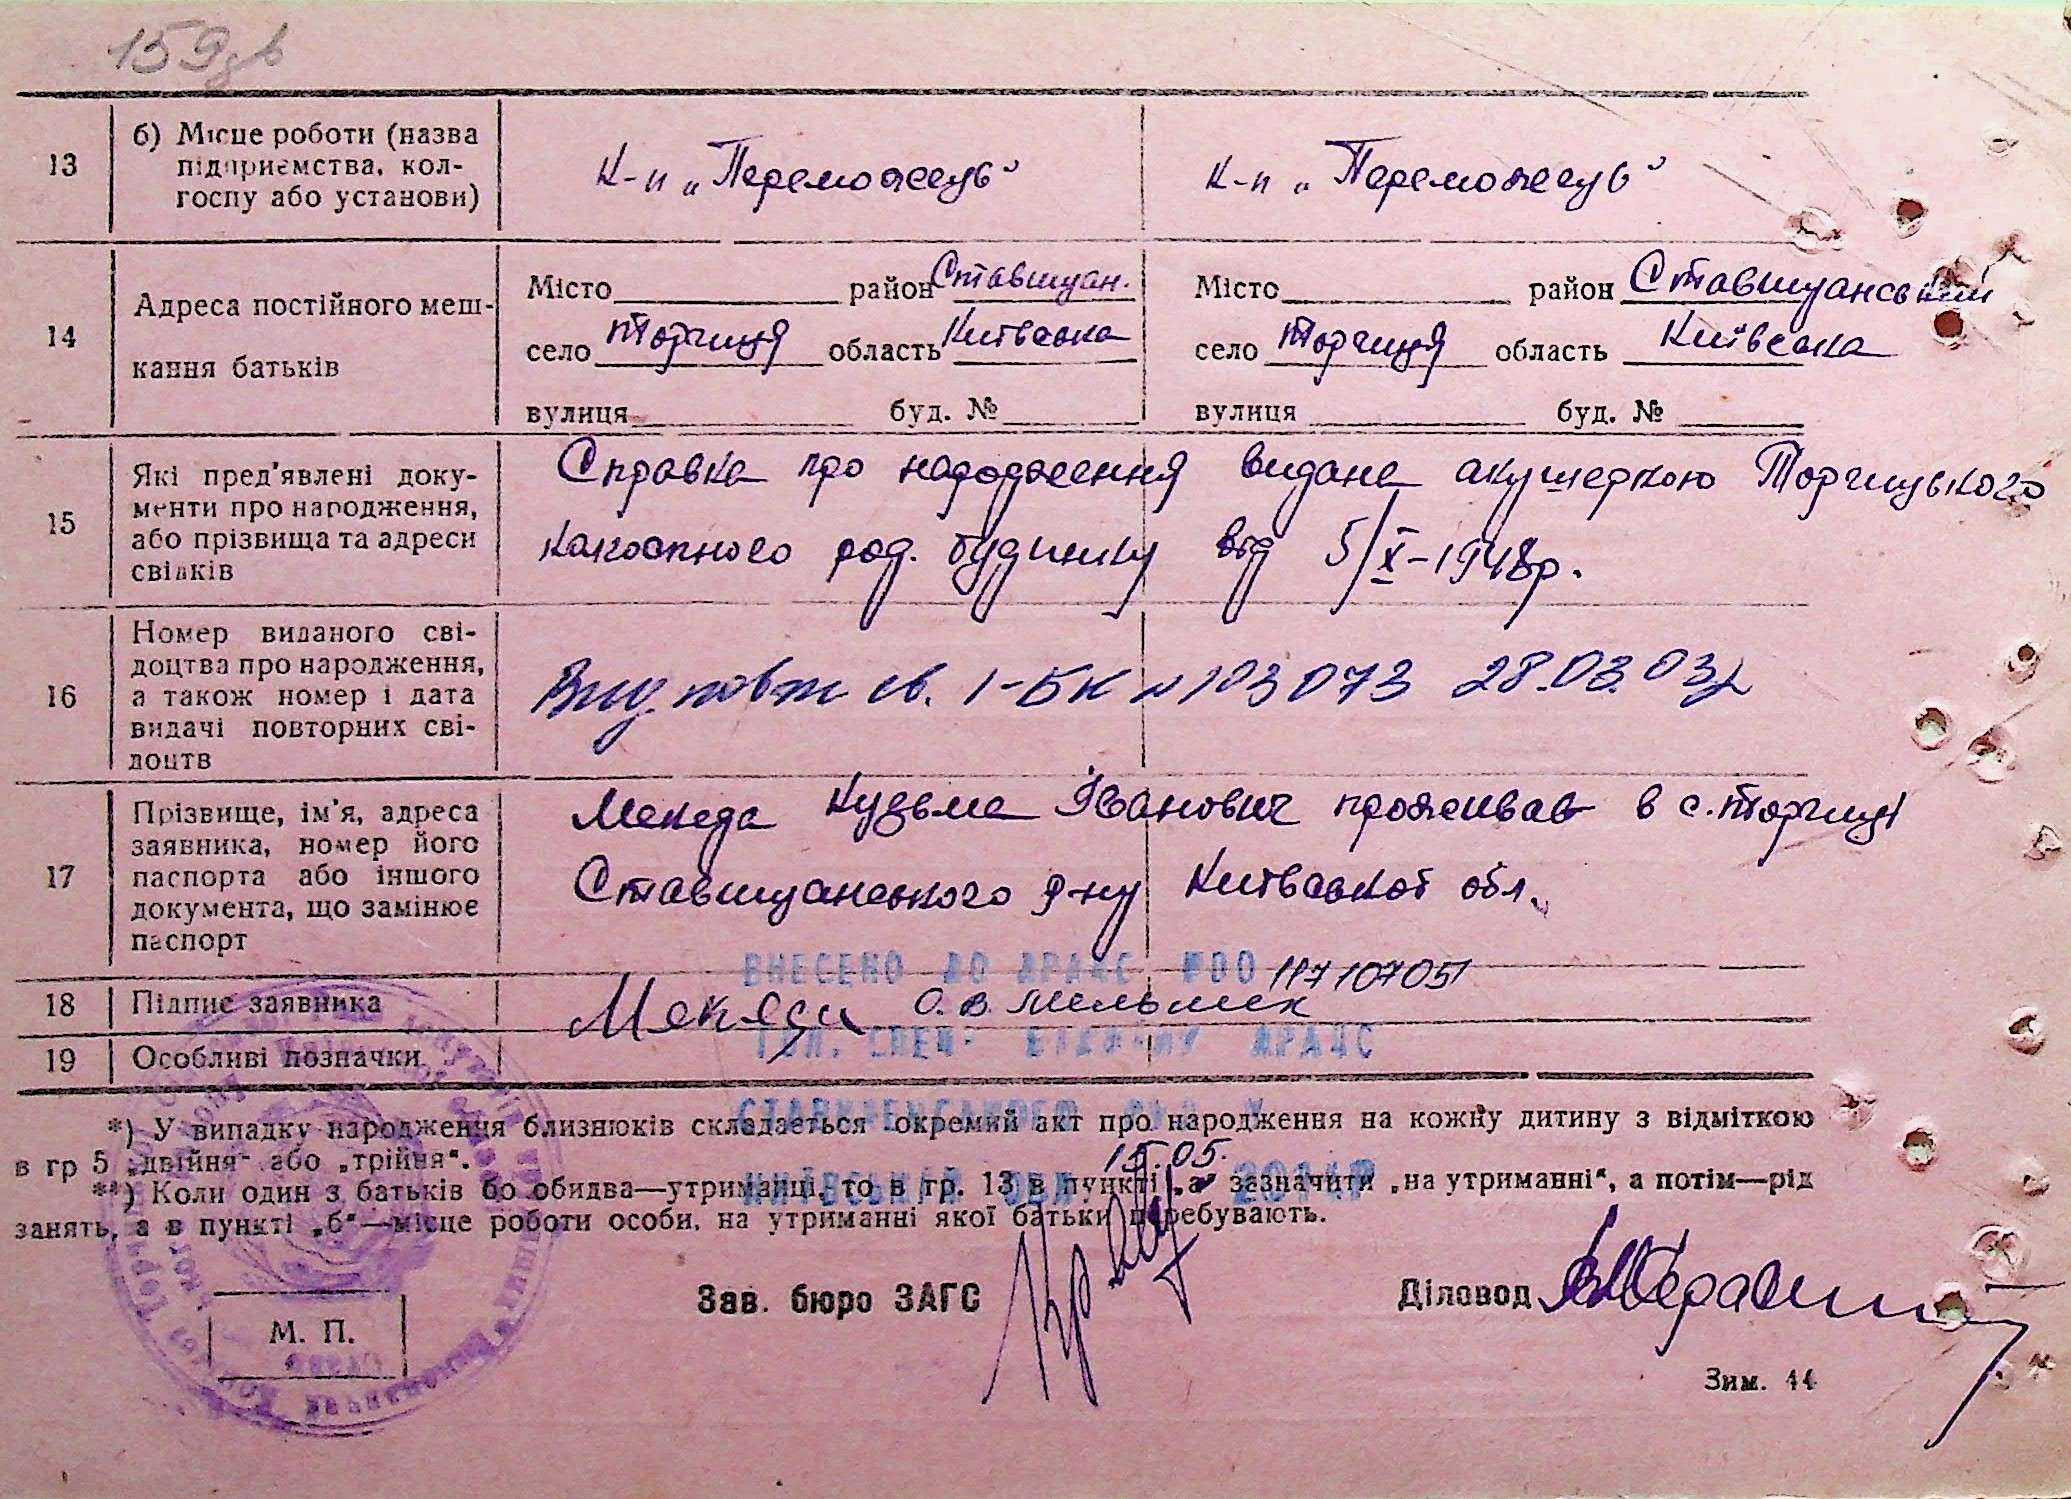 159 зв
13
б) Місце роботи (назва
підприємства, кол-
госпу або установи)
К-п „Переможець"
К-п „Переможець"
14
Адреса постійного меш-
кання батьків
Місто район Ставищан.
село Торчиця область Київська
вулиця буд. №
Місто район Ставищанський
село Торчиця область Київська
вулиця буд. №
15
Які пред'явлені доку-
менти про народження,
або прізвища та адреси
свідків
Справка про народження видана акушеркою Торчицького
колоспного род. будинку від 5/X-1948р.
16
Номер виданого сві-
доцтва про народження,
а також номер і дата
видачі повторних сві-
доцтв
повт св. І-БК №103073 28.03.03р
17
Прізвище, ім'я, адреса
заявника, номер його
паспорта або іншого
документа, що замінює
паспорт
Македа Кузьма Іванович проживає в с. Торчиці
Ставищанського р-ну Київської обл.
ВНЕСЕНО ДО ДРАЦС №00 117107051
18
Підпис заявника
О.В. Мельник
ГОЛ. СПЕЦ. ВІДДІЛУ ДРАЦС
19
Особливі позначки
*) У випадку народження близнюків складається окремий акт про народження на кожну дитину з відміткою
в гр 5 „двійня" або „трійня".
15.05. 2014р
**) Коли один з батьків бо обидва—утриманці, то в гр. 13 в пункті „а" зазначити „на утриманні", а потім—рід
занять, а в пункті „б"—місце роботи особи, на утриманні якої батьки перебувають.
Зав. бюро ЗАГС
Діловод
М. П.
Зим. 44